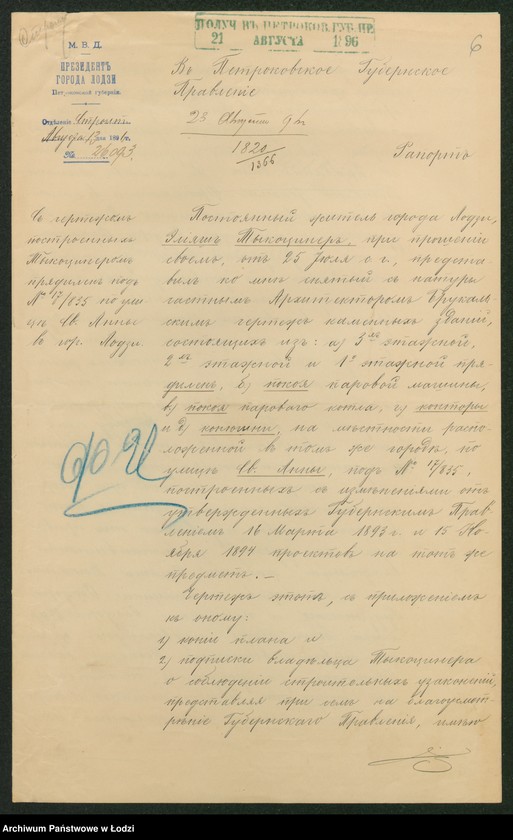 ПОЛУЧ. ВЪ ПЕТРОКОВ. ГУБ. ПР.
21 АВГУСТА 1896
6
М. В. Д.
ПРЕЗИДЕНТЪ
ГОРОДА ЛОДЗИ
Петроковской губерніи.
Отдѣленіе Строит.
Августа 13 дня 1896 г.
№ 26093
Въ Петроковское Губернское
Правленіе
23 Августа
1820
1366
Рапортъ
Съ чертежомъ
построенныхъ
Тыкоцинеромъ
прядиленъ подъ
№ 17/835 по ули-
цѣ Св. Анны
въ гор. Лодзи.
Постоянный житель города Лодзи,
Тыкоцинеръ, при прошеніи
своемъ, отъ 25 Іюля с. г., предста
вилъ ко мнѣ снятый съ натуры
частнымъ Архитекторомъ Брукаль-
скимъ чертежъ каменныхъ зданій,
состоящихъ изъ: а) 3хъ этажной,
2хъ этажной и 1о этажной пря-
дилень, б) покоя паровой машины,
в) покоя пароваго котла, г) конторы
и д) конюшни, на мѣстности распо-
ложенной въ томъ же городѣ, по
улицѣ Св. Анны, подъ № 17/835,
построенныхъ съ измѣненіями отъ
утвержденныхъ Губернскимъ Прав-
леніемъ 16 Марта 1893 г. и 15 Но-
ября 1894 проектовъ на тотъ же
предметъ. —
Чертежъ этотъ, съ приложеніемъ
къ оному:
1) копіи плана и
2) подписки владѣльца Тыкоцинера
о соблюденіи строительныхъ узаконеній,
представляя при семъ на благоусмот-
рѣніе Губернскаго Правленія, имѣю
Archiwum Państwowe w Łodzi